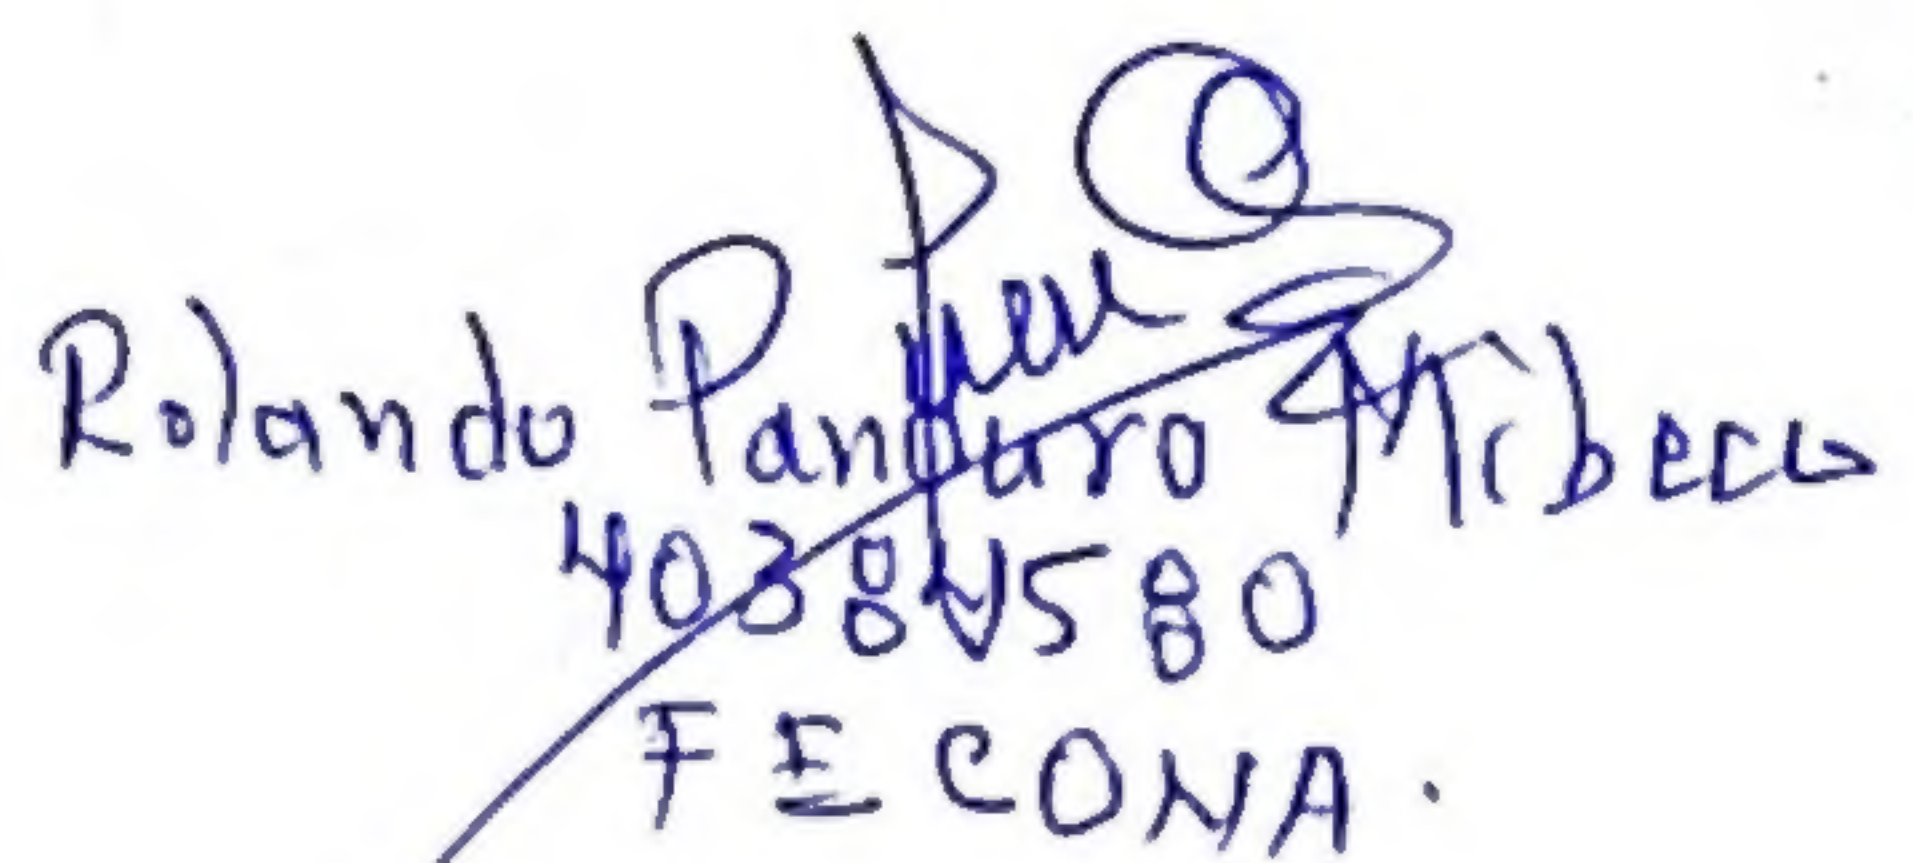 Rolando Panduro Mibeco
40384580
FECONA.